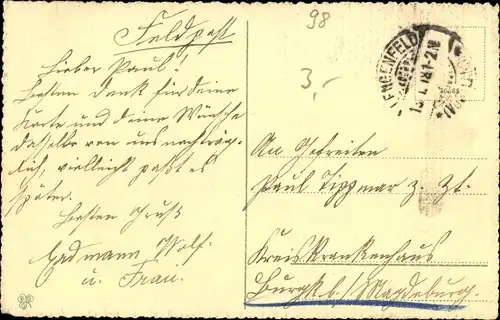 Feldpost
98
3,-
Lieber Paul!
Besten Dank für deine
Karte und deine Wünsche
dasselbe von uns nachträg-
lich, vielleicht paßt es
später.
Besten Gruß
Erdmann Wolf.
u. Frau.
LENGENFELD
An Gefreiten
Paul Tippmar z. Zt.
Kreiskrankenhaus
Burg b./Magdeburg.